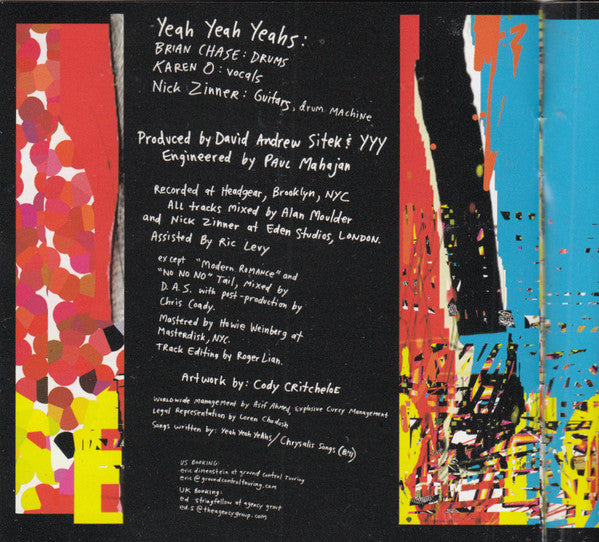 Yeah Yeah Yeahs:
BRIAN CHASE: DRUMS
KAREN O: vocals
Nick Zinner: Guitars, drum MACHINE
Produced by David Andrew Sitek & YYY
Engineered by PAUL Mahajan
Recorded at Headgear, Brooklyn, NYC
ALL tracks mixed by Alan Moulder
and Nick Zinner at Eden Studios, LONDON.
Assisted By Ric Levy
except "Modern Romance" and
"NO NO NO" Tail, Mixed by
D.A.S. with post-production by
Chris Coady.
Mastered by Howie Weinberg at
Masterdisk, NYC.
Track Editing by Roger Lian.
Artwork by: Cody CRitcheloE
Worldwide Management by Asif Ahmed, Explosive Curry Management
Legal Representation by Loren Chodosh
Songs written by: Yeah Yeah YeAhs/ Chrysalis Songs (BMI)
US BOOKING:
eric dimenstein at ground control Touring
eric@groundcontroltouring.com
UK BOOKING:
ed stringfellow at agency group
ed.s@theagencygroup.com